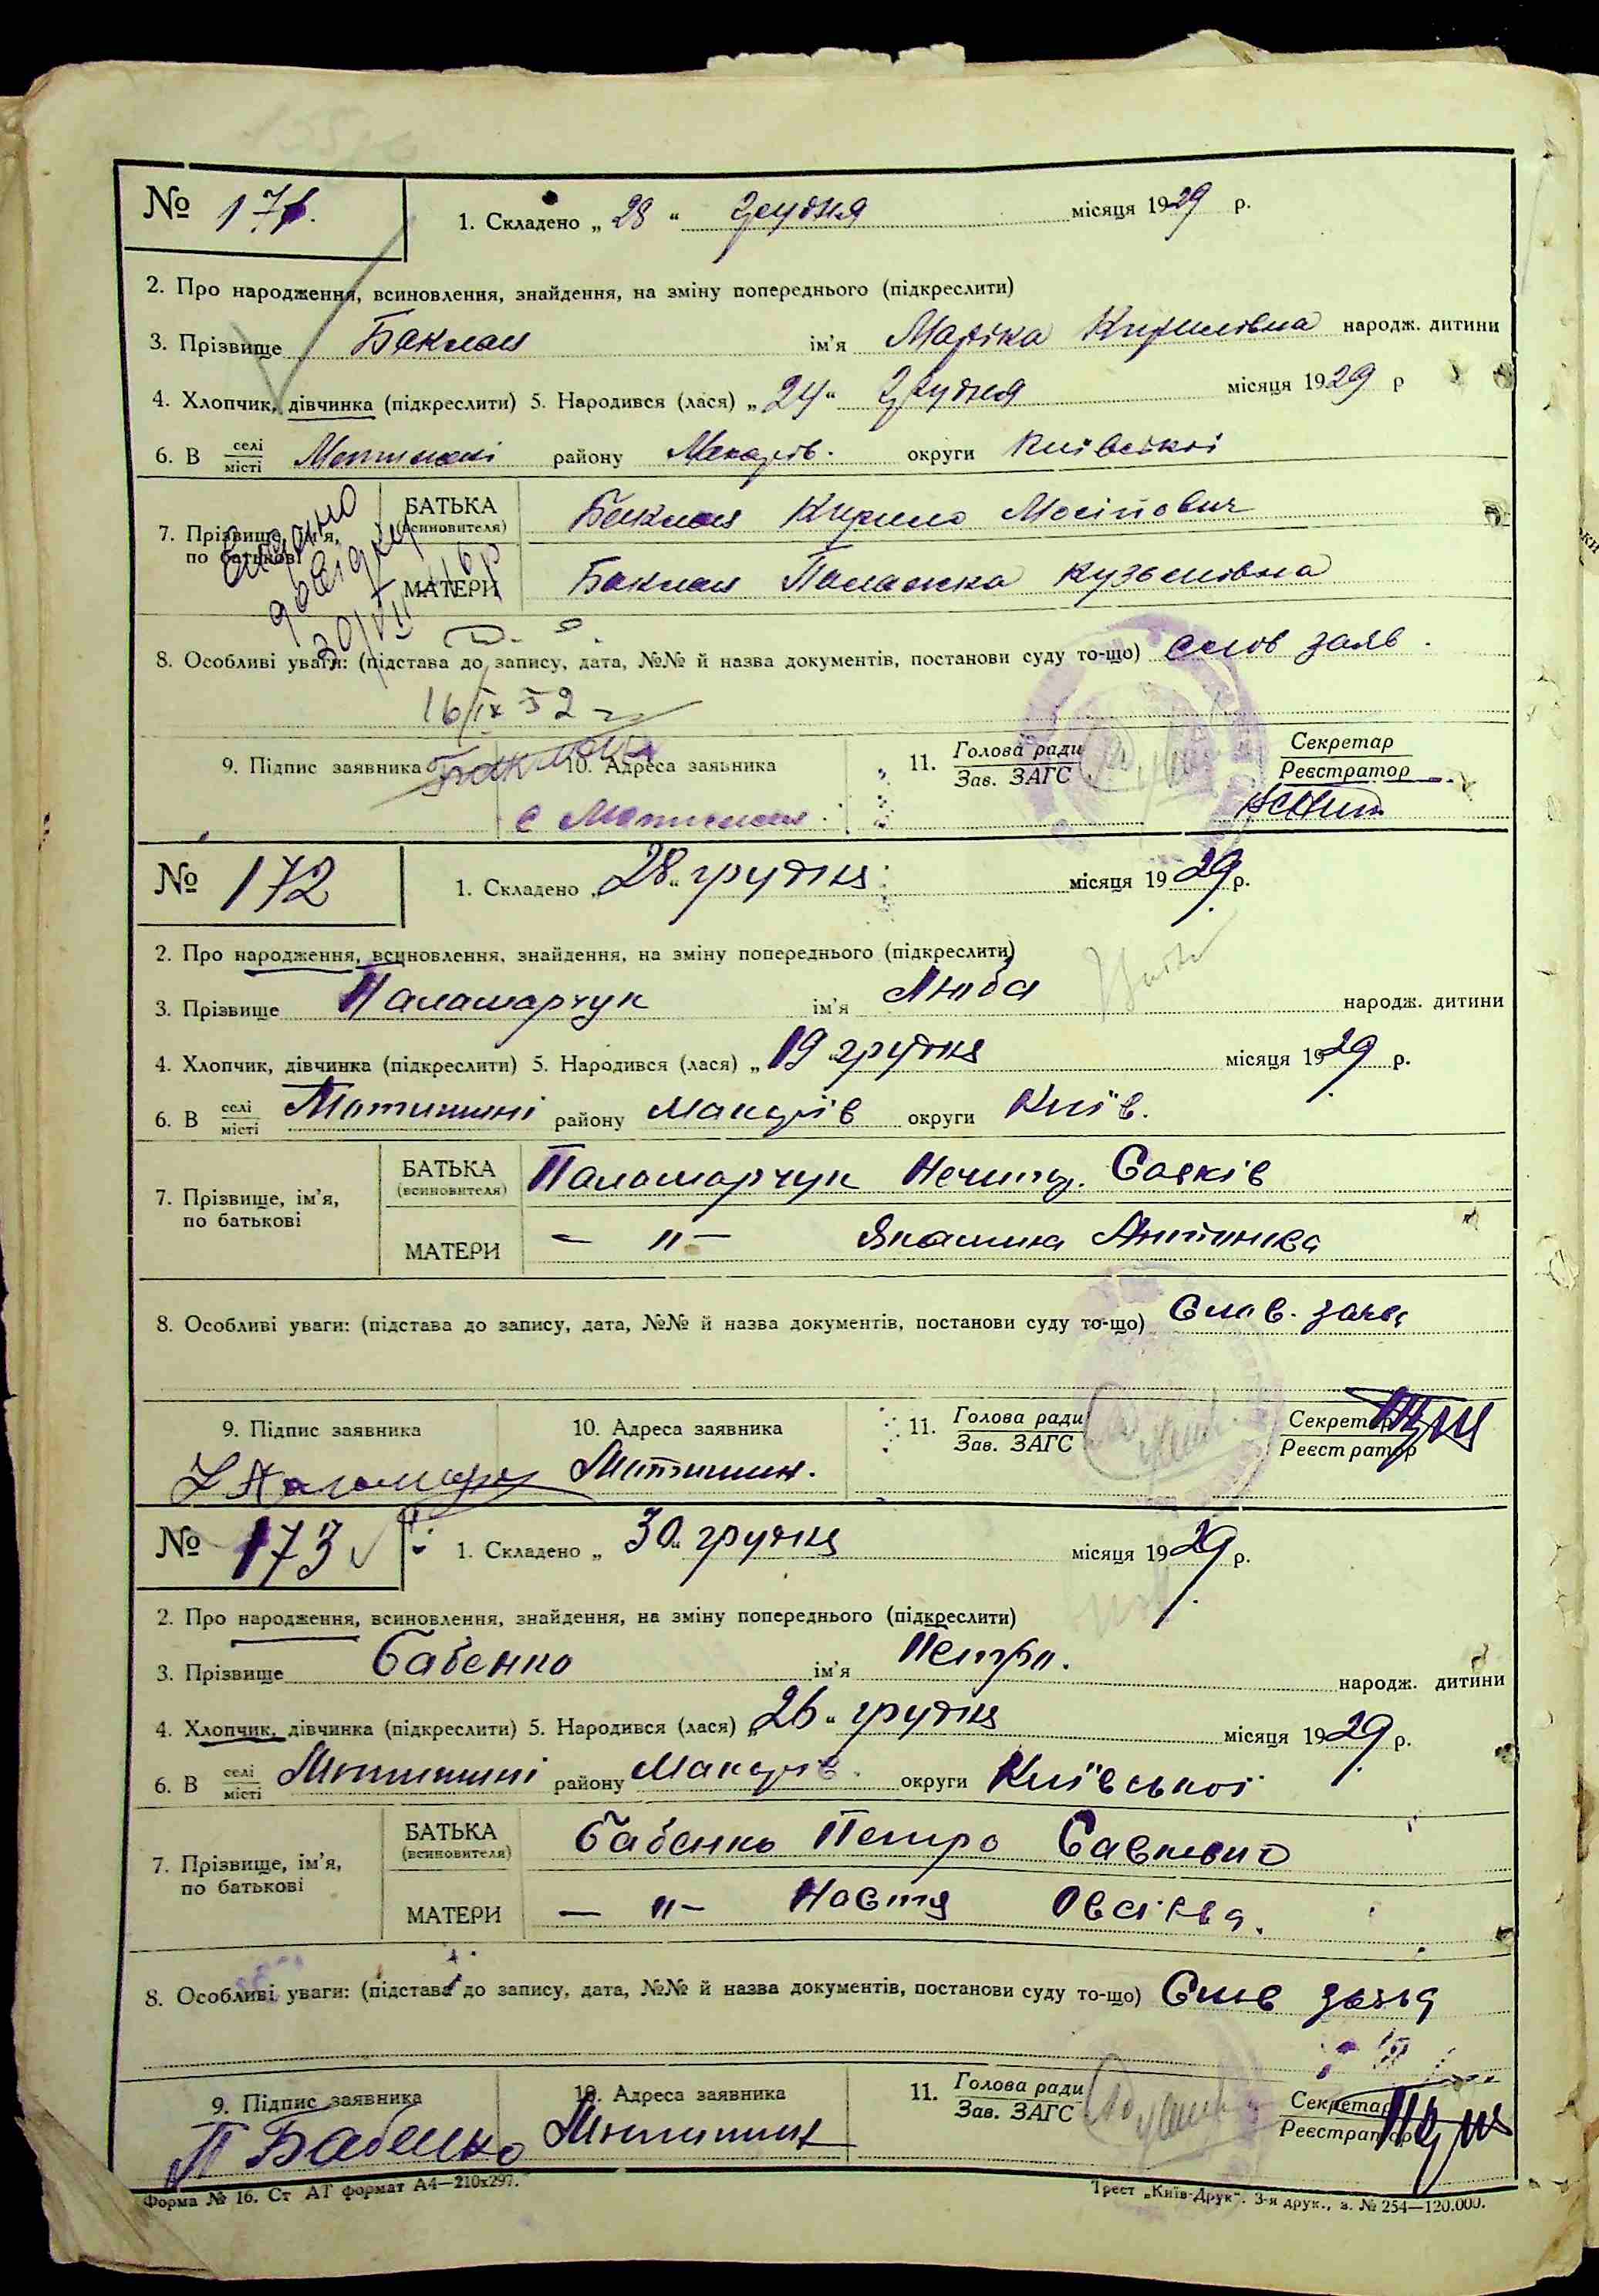 № 171.
1. Складено „ 28 “ грудня місяця 1929 р.
2. Про народження, всиновлення, знайдення, на зміну попереднього (підкреслити)
3. Прізвище Баклан ім'я Марійка Кирилівна народж. дитини
4. Хлопчик, дівчинка (підкреслити) 5. Народився (лася) „ 24 “ грудня місяця 1929 р
6. В селі місті Мотижині району Макарів. округи Київської
7. Прізвище, ім'я, по батькові
БАТЬКА (всиновителя) Баклан Кирило Мосійович
МАТЕРИ Баклан Палажка Кузьмівна
Видано
довідку
8. Особливі уваги: (підстава до запису, дата, №№ й назва документів, постанови суду то-що) слов заяв.
16/ix 52
9. Підпис заявника Баклан
10. Адреса заявника
с Мотижин
11. Голова ради
Зав. ЗАГС
Секретар
Реєстратор
№ 172
1. Складено „ 28 “ грудня місяця 1929 р.
2. Про народження, всиновлення, знайдення, на зміну попереднього (підкреслити)
3. Прізвище Паламарчук ім'я Люба народж. дитини
4. Хлопчик, дівчинка (підкреслити) 5. Народився (лася) „ 19 “ грудня місяця 1929 р.
6. В селі місті Мотижині району Макарів округи Київ.
7. Прізвище, ім'я, по батькові
БАТЬКА (всиновителя) Паламарчук Нечипір.
МАТЕРИ — " —
8. Особливі уваги: (підстава до запису, дата, №№ й назва документів, постанови суду то-що) Слов. заяв
9. Підпис заявника
10. Адреса заявника
Мотижин.
11. Голова ради
Зав. ЗАГС
Секретар
Реєстратор
№ 173
1. Складено „ 30 “ грудня місяця 1929 р.
2. Про народження, всиновлення, знайдення, на зміну попереднього (підкреслити)
3. Прізвище Бабенко ім'я Петро. народж. дитини
4. Хлопчик, дівчинка (підкреслити) 5. Народився (лася) „ 26 “ грудня місяця 1929 р.
6. В селі місті Мотижині району Макарів. округи Київської
7. Прізвище, ім'я, по батькові
БАТЬКА (всиновителя) Бабенко Петро
МАТЕРИ — " — Настя Овсіївна.
8. Особливі уваги: (підстава до запису, дата, №№ й назва документів, постанови суду то-що) Слов заява
9. Підпис заявника
П Бабенко
10. Адреса заявника
Мотижин
11. Голова ради
Зав. ЗАГС
Секретар
Реєстратор
Форма № 16. Ст АТ формат А4—210х297.
Трест „Київ-Друк“. 3-я друк., з. № 254—120.000.